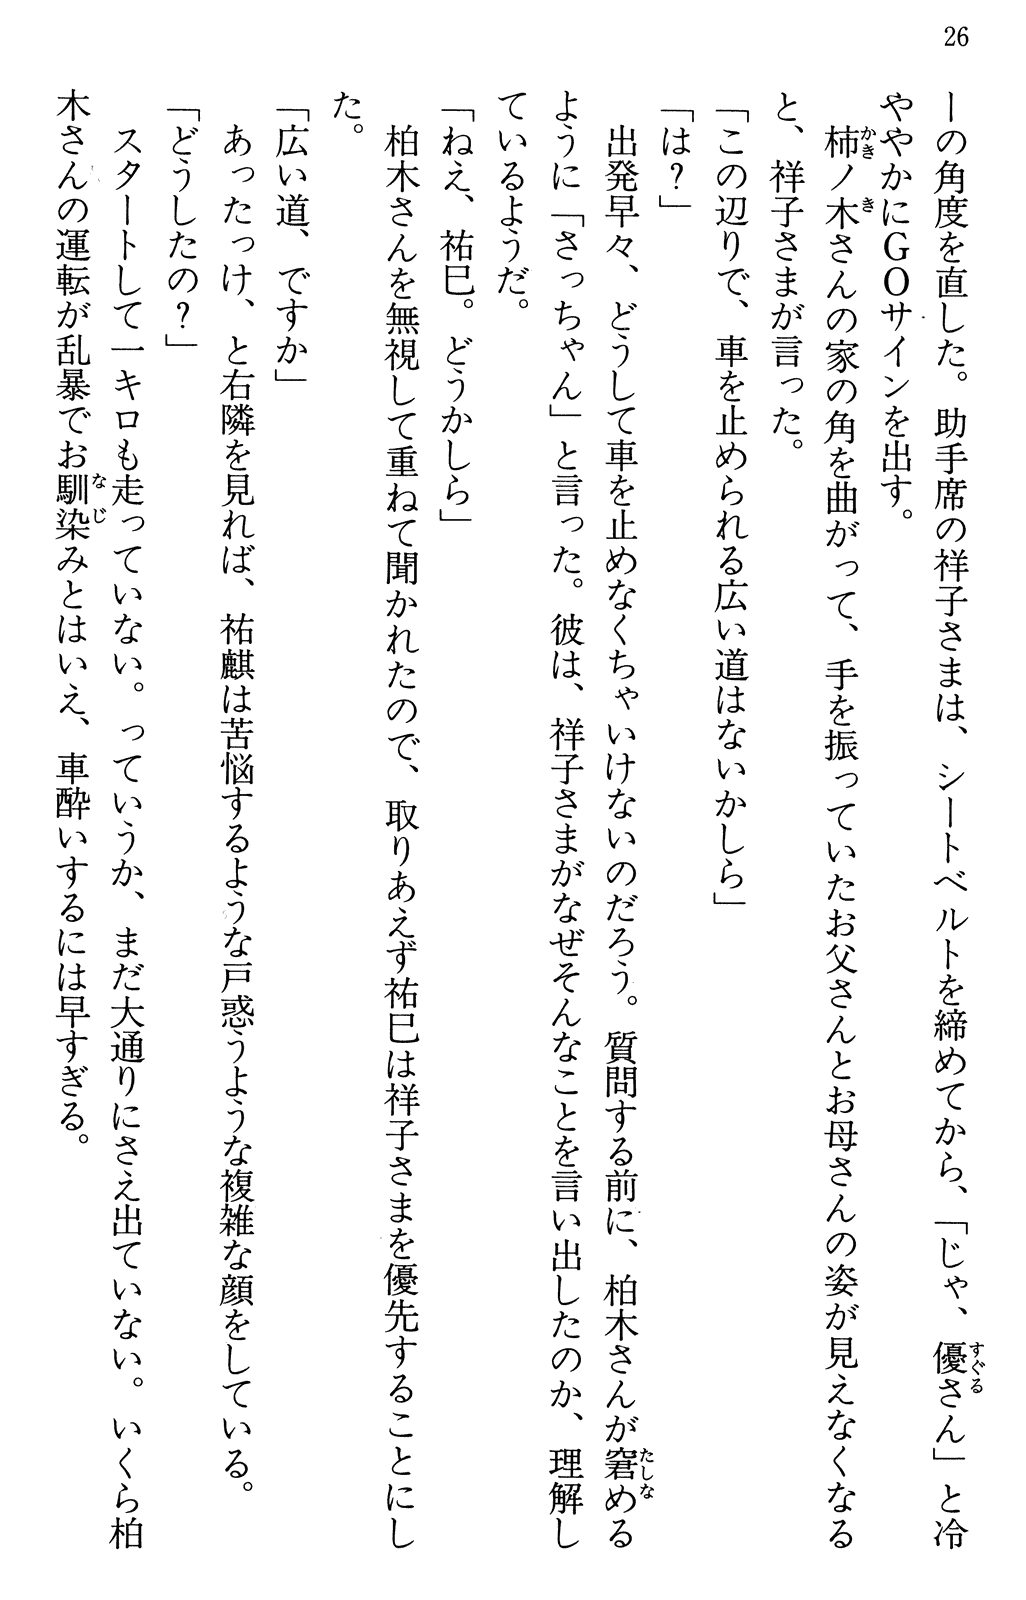 26
ーの角度を直した。助手席の祥子さまは、シートベルトを締めてから、「じゃ、優さん」と冷
ややかにＧＯサインを出す。
柿ノ木さんの家の角を曲がって、手を振っていたお父さんとお母さんの姿が見えなくなる
と、祥子さまが言った。
「この辺りで、車を止められる広い道はないかしら」
「は？」
出発早々、どうして車を止めなくちゃいけないのだろう。質問する前に、柏木さんが窘める
ように「さっちゃん」と言った。彼は、祥子さまがなぜそんなことを言い出したのか、理解し
ているようだ。
「ねえ、祐巳。どうかしら」
柏木さんを無視して重ねて聞かれたので、取りあえず祐巳は祥子さまを優先することにし
た。
「広い道、ですか」
あったっけ、と右隣を見れば、祐麒は苦悩するような戸惑うような複雑な顔をしている。
「どうしたの？」
スタートして一キロも走っていない。っていうか、まだ大通りにさえ出ていない。いくら柏
木さんの運転が乱暴でお馴染みとはいえ、車酔いするには早すぎる。